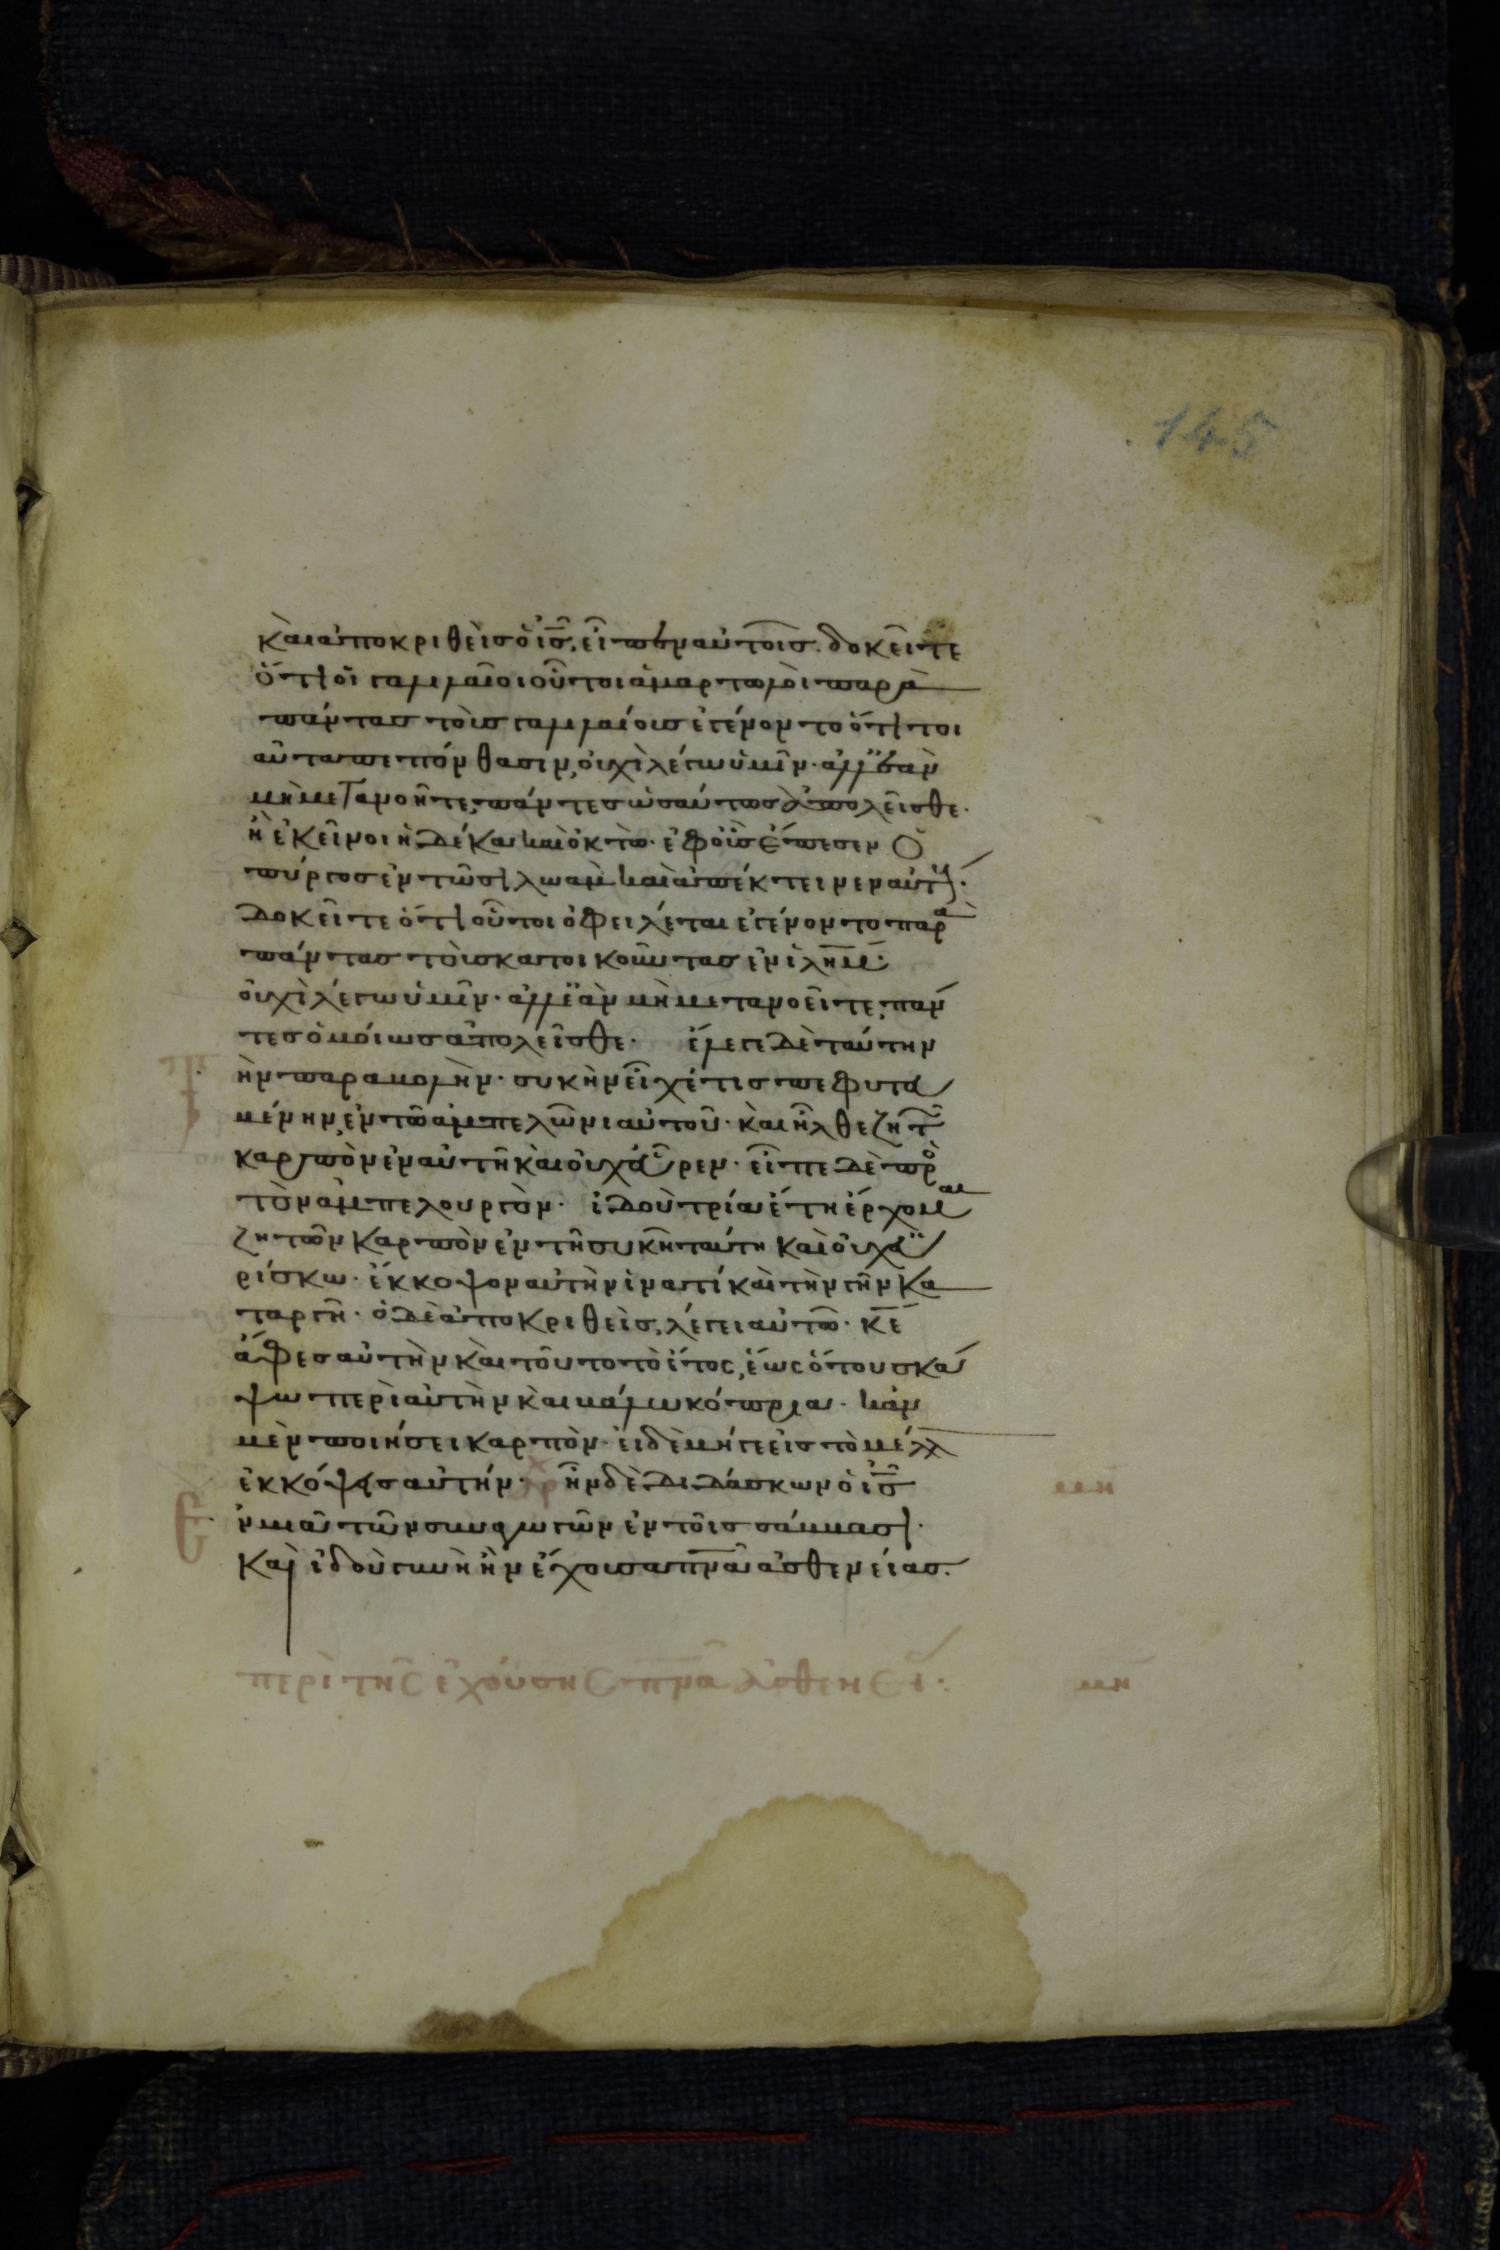 145
καὶ ἀποκριθεὶς ὁ ις, εἶπεν αὐτοῖς. δοκεῖτε
ὅτι οἱ γαλιλαῖοι οὗτοι ἁμαρτωλοὶ παρὰ
πάντας τοὺς γαλιλαίους ἐγένοντο ὅτι τοι
αῦτα πεπόνθασιν, οὐχὶ λέγω ὑμῖν. ἀλλ' ἐὰν
μὴ μετανοῆτε, πάντες ὡσαύτως ἀπολεῖσθε.
ἢ ἐκεῖνοι ἡ δέκα καὶ ὀκτὼ. ἐφ οἷς ἔπεσεν ὁ
πύργος ἐν τῶ σιλωὰμ καὶ ἀπέκτεινεν αὐτούς.
δοκεῖτε ὅτι οὗτοι ὀφειλέται ἐγένοντο παρὰ
πάντας τοὺς κατοικοῦντας ἐν ἱλημ.
οὐχὶ λέγω ὑμῖν. ἀλλ' ἐὰν μὴ μετανοεῖτε, πάν
τες ὁμοίως ἀπολεῖσθε. ἔλεγε δὲ ταύτην
ὴν παραβολὴν. συκῆν εἶχέ τις πεφυτευ
μένην, ἐν τῶ ἀμπελῶνι αὐτοῦ. καὶ ἦλθε ζητῶν
καρπὸν ἐν αὐτῆ καὶ οὐχ εὗρεν. εἶπε δὲ πρὸ
τὸν ἀμπελουργὸν. ἰδοὺ τρία ἔτη ἔρχομαι
ζητῶν καρπὸν ἐν τῆ συκῆ ταύτη καὶ οὐχ εὑ
ρίσκω. ἔκκοψον αὐτὴν ἱνατί καὶ τὴν γῆν κα
ταργῆ. ὁ δὲ ἀποκριθεὶς, λέγει αὐτῶ. κε
ἄφες αὐτὴν καὶ τοῦτο τὸ ἔτος, ἕως ὅτου σκά
ψω περὶ αὐτὴν καὶ βάλω κόπρια. κἀν
μὲν ποιήσει καρπὸν. εἰ δὲ μήγε εἰς τὸ μέλλ
ἐκκόψεις αὐτήν. ἦν δὲ διδάσκων ὁ ις
ν μιᾶ τῶν συναγωγῶν ἐν τοῖς σάββασι.
καὶ ἰδοὺ γυνὴ ἦν ἔχουσα πνα ἀσθενείας.
περὶ τῆς ἐχούσης πνα ἀσθενεί: